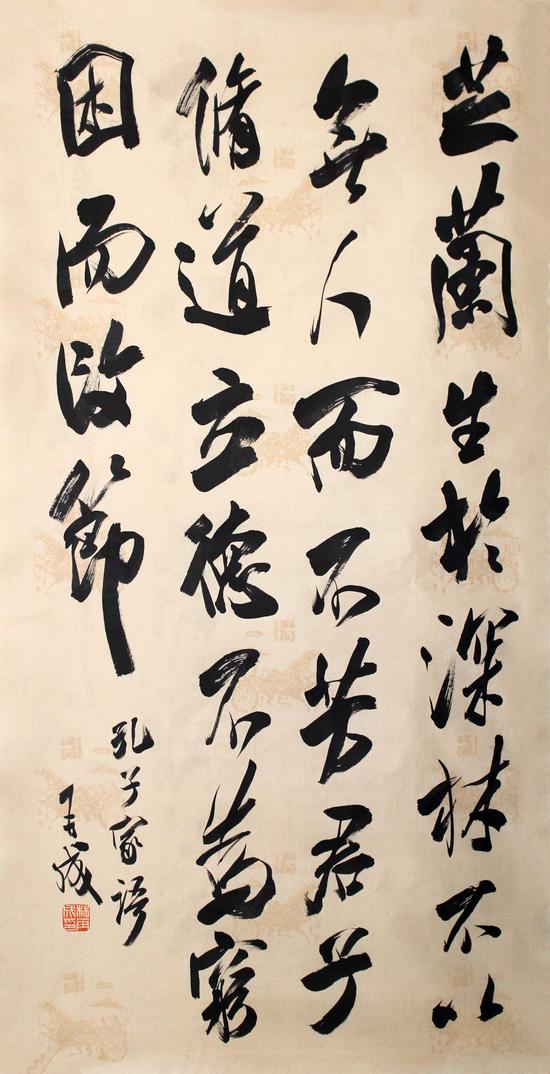 芝蘭生於深林不以
無人而不芳君子
脩道立德不為窮
困而改節
孔子家語